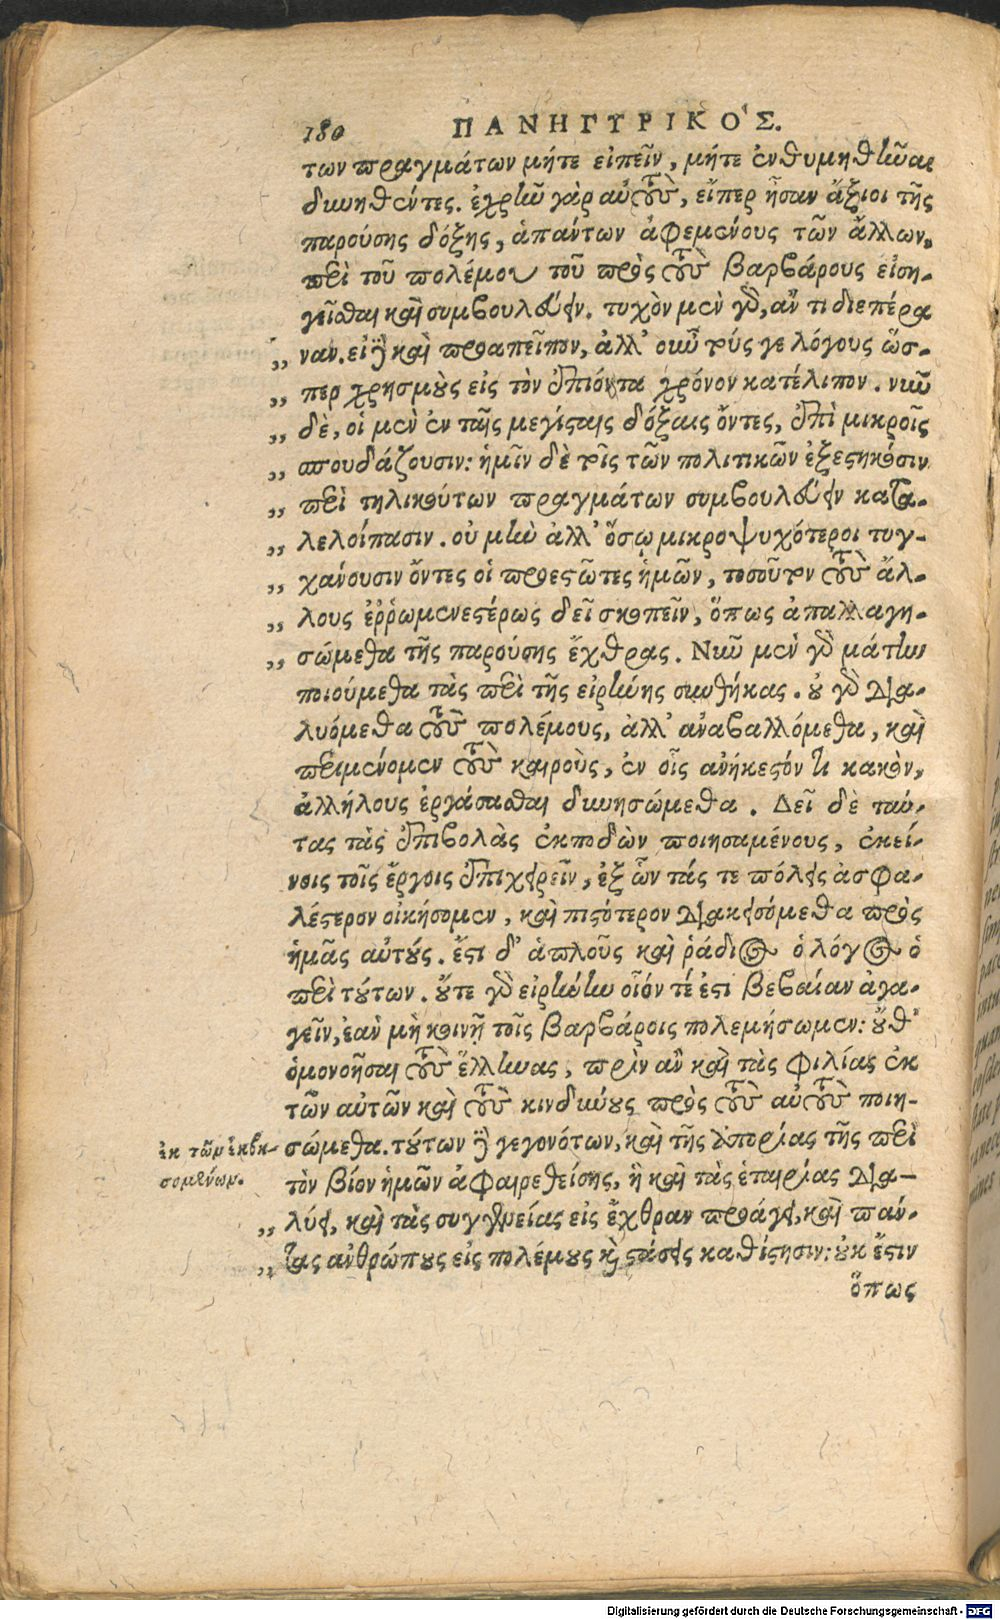 180 ΠΑΝΗΓΥΡΙΚΟ'Σ.
των πραγμάτων μήτε εἰπεῖν, μήτε ἐνθυμηθῆναι
δυνηθέντες. ἐχρῆν γὰρ αὐτοὺς, εἴπερ ἦσαν ἄξιοι τῆς
παρούσης δόξης, ἁπάντων ἀφεμένους τῶν ἄλλων,
περὶ τοῦ πολέμου τοῦ πρὸς τοὺς βαρβάρους εἰση-
γεῖσθαι καὶ συμβουλεύειν. τυχὸν μὲν γὰρ, ἄν τι διεπέρα
„ ναν. εἰ δὲ καὶ προαπεῖπον, ἀλλ' οὖν τούς γε λόγους ὥσ-
„ περ χρησμοὺς εἰς τὸν ἐπιόντα χρόνον κατέλιπον. νῦν
„ δὲ, οἱ μὲν ἐν ταῖς μεγίσταις δόξαις ὄντες, ἐπὶ μικροῖς
„ σπουδάζουσιν: ἡμῖν δὲ τοῖς τῶν πολιτικῶν ἐξεστηκόσιν
„ περὶ τηλικούτων πραγμάτων συμβουλεύειν κατα-
„ λελοίπασιν. οὐ μὴν ἀλλ' ὅσῳ μικροψυχότεροι τυγ-
„ χάνουσιν ὄντες οἱ προεστῶτες ἡμῶν, τοσοῦτον τοὺς ἄλ-
„ λους ἐῤῥωμενεστέρως δεῖ σκοπεῖν, ὅπως ἀπαλλαγη-
„ σώμεθα τῆς παρούσης ἔχθρας. Νῦν μὲν γὰρ μάτην
ποιούμεθα τὰς περὶ τῆς εἰρήνης συνθήκας. οὐ γὰρ δια-
λυόμεθα τοὺς πολέμους, ἀλλ' ἀναβαλλόμεθα, καὶ
περιμένομεν τοὺς καιροὺς, ἐν οἷς ἀνήκεστόν τι κακὸν,
ἀλλήλους ἐργάσασθαι δυνησώμεθα. Δεῖ δὲ ταύ-
τας τὰς ἐπιβολὰς ἐκποδὼν ποιησαμένους, ἐκεί-
νοις τοῖς ἔργοις ἐπιχειρεῖν, ἐξ ὧν τάς τε πόλεις ἀσφα-
λέστερον οἰκήσομεν, καὶ πιστότερον διακεισόμεθα πρὸς
ἡμᾶς αὐτούς. ἔστι δ' ἁπλοῦς καὶ ῥάδιος ὁ λόγος ὁ
περὶ τούτων. οὔτε γὰρ εἰρήνην οἷόν τέ ἐστι βεβαίαν ἀγα-
γεῖν, ἐὰν μὴ κοινῇ τοῖς βαρβάροις πολεμήσωμεν: οὔθ'
ὁμονοῆσαι τοὺς ἕλληνας, πρὶν ἂν καὶ τὰς φιλίας ἐκ
τῶν αὐτῶν καὶ τοὺς κινδύνους πρὸς τοὺς αὐτοὺς ποιη-
σώμεθα. τούτων δὲ γεγονότων, καὶ τῆς ἀπορίας τῆς περὶ
τὸν βίον ἡμῶν ἀφαιρεθείσης, ἣ καὶ τὰς ἑταιρίας δια-
„ λύει, καὶ τὰς συγγενείας εἰς ἔχθραν προάγει, καὶ πάν-
„ τας ἀνθρώπους εἰς πολέμους καὶ στάσεις καθίστησιν: οὐκ ἔστιν
ὅπως